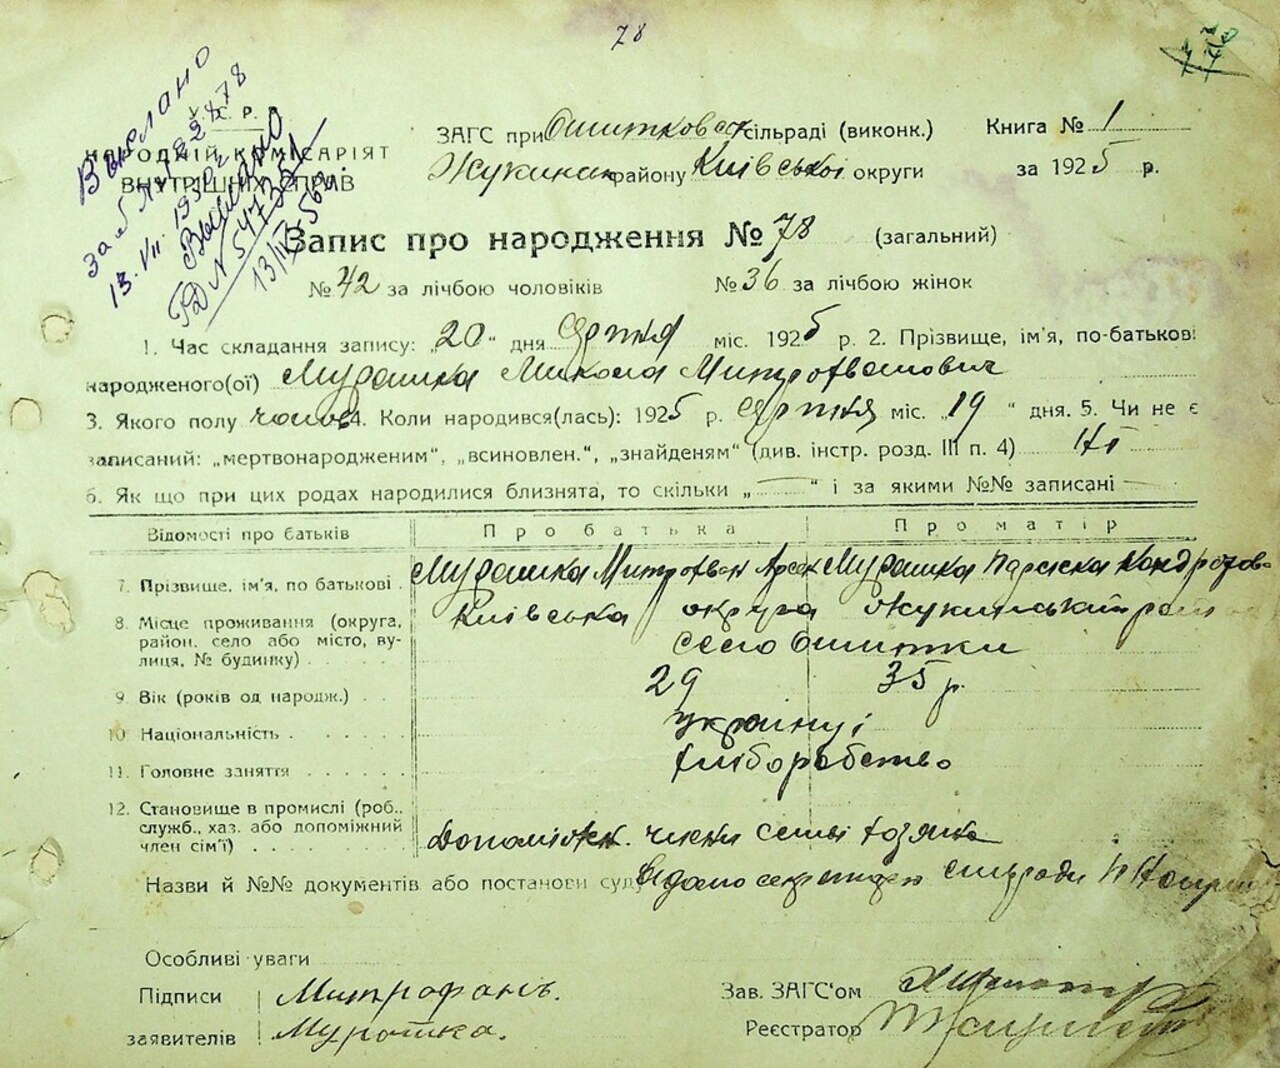 78
Выслано
за б № 1822878
13. VII. 1950 г.
Выслано
ГД № 547351
У. С. Р.
НАРОДНІЙ КОМІСАРІЯТ
ВНУТРІШНІХ СПРАВ
ЗАГС при Ошитковській сільраді (виконк.) Книга № 1
Жукинськ району Київської округи за 1925 р.
Запис про народження № 78 (загальний)
№ 42 за лічбою чоловіків № 36 за лічбою жінок
1. Час складання запису: „20“ дня Серпня міс. 1925 р. 2. Прізвище, ім'я, по-батькові
народженого(ої) Мурашка Микола Митрофванович
3. Якого полу чолов 4. Коли народився(лась): 1925 р. Серпня міс. „19“ дня. 5. Чи не є
записаний: „мертвонародженим“, „всиновлен.“, „знайденям“ (див. інстр. розд. III п. 4) Ні
6. Як що при цих родах народилися близнята, то скільки „—“ і за якими №№ записані —
Відомості про батьків Про батька Про матір
7. Прізвище, ім'я, по батькові . Мурашка Митрофван Арсен Мурашка Параска Кондратова
8. Місце проживання (округа, район, село або місто, вулиця, № будинку) Київська округа Жукинський район
село Ошитки
9. Вік (років од народж.) 29 35 р.
10. Національність українці
11. Головне заняття хліборобство
12. Становище в промислі (роб., служб., хаз. або допоміжний член сім'ї) Допоміжн. члени семьі хозяіна
Назви й №№ документів або постанови суду Відомо секретарю сільради
Особливі уваги
Підписи Митрофань.
заявителів Мурашка.
Зав. ЗАГС'ом
Реєстратор